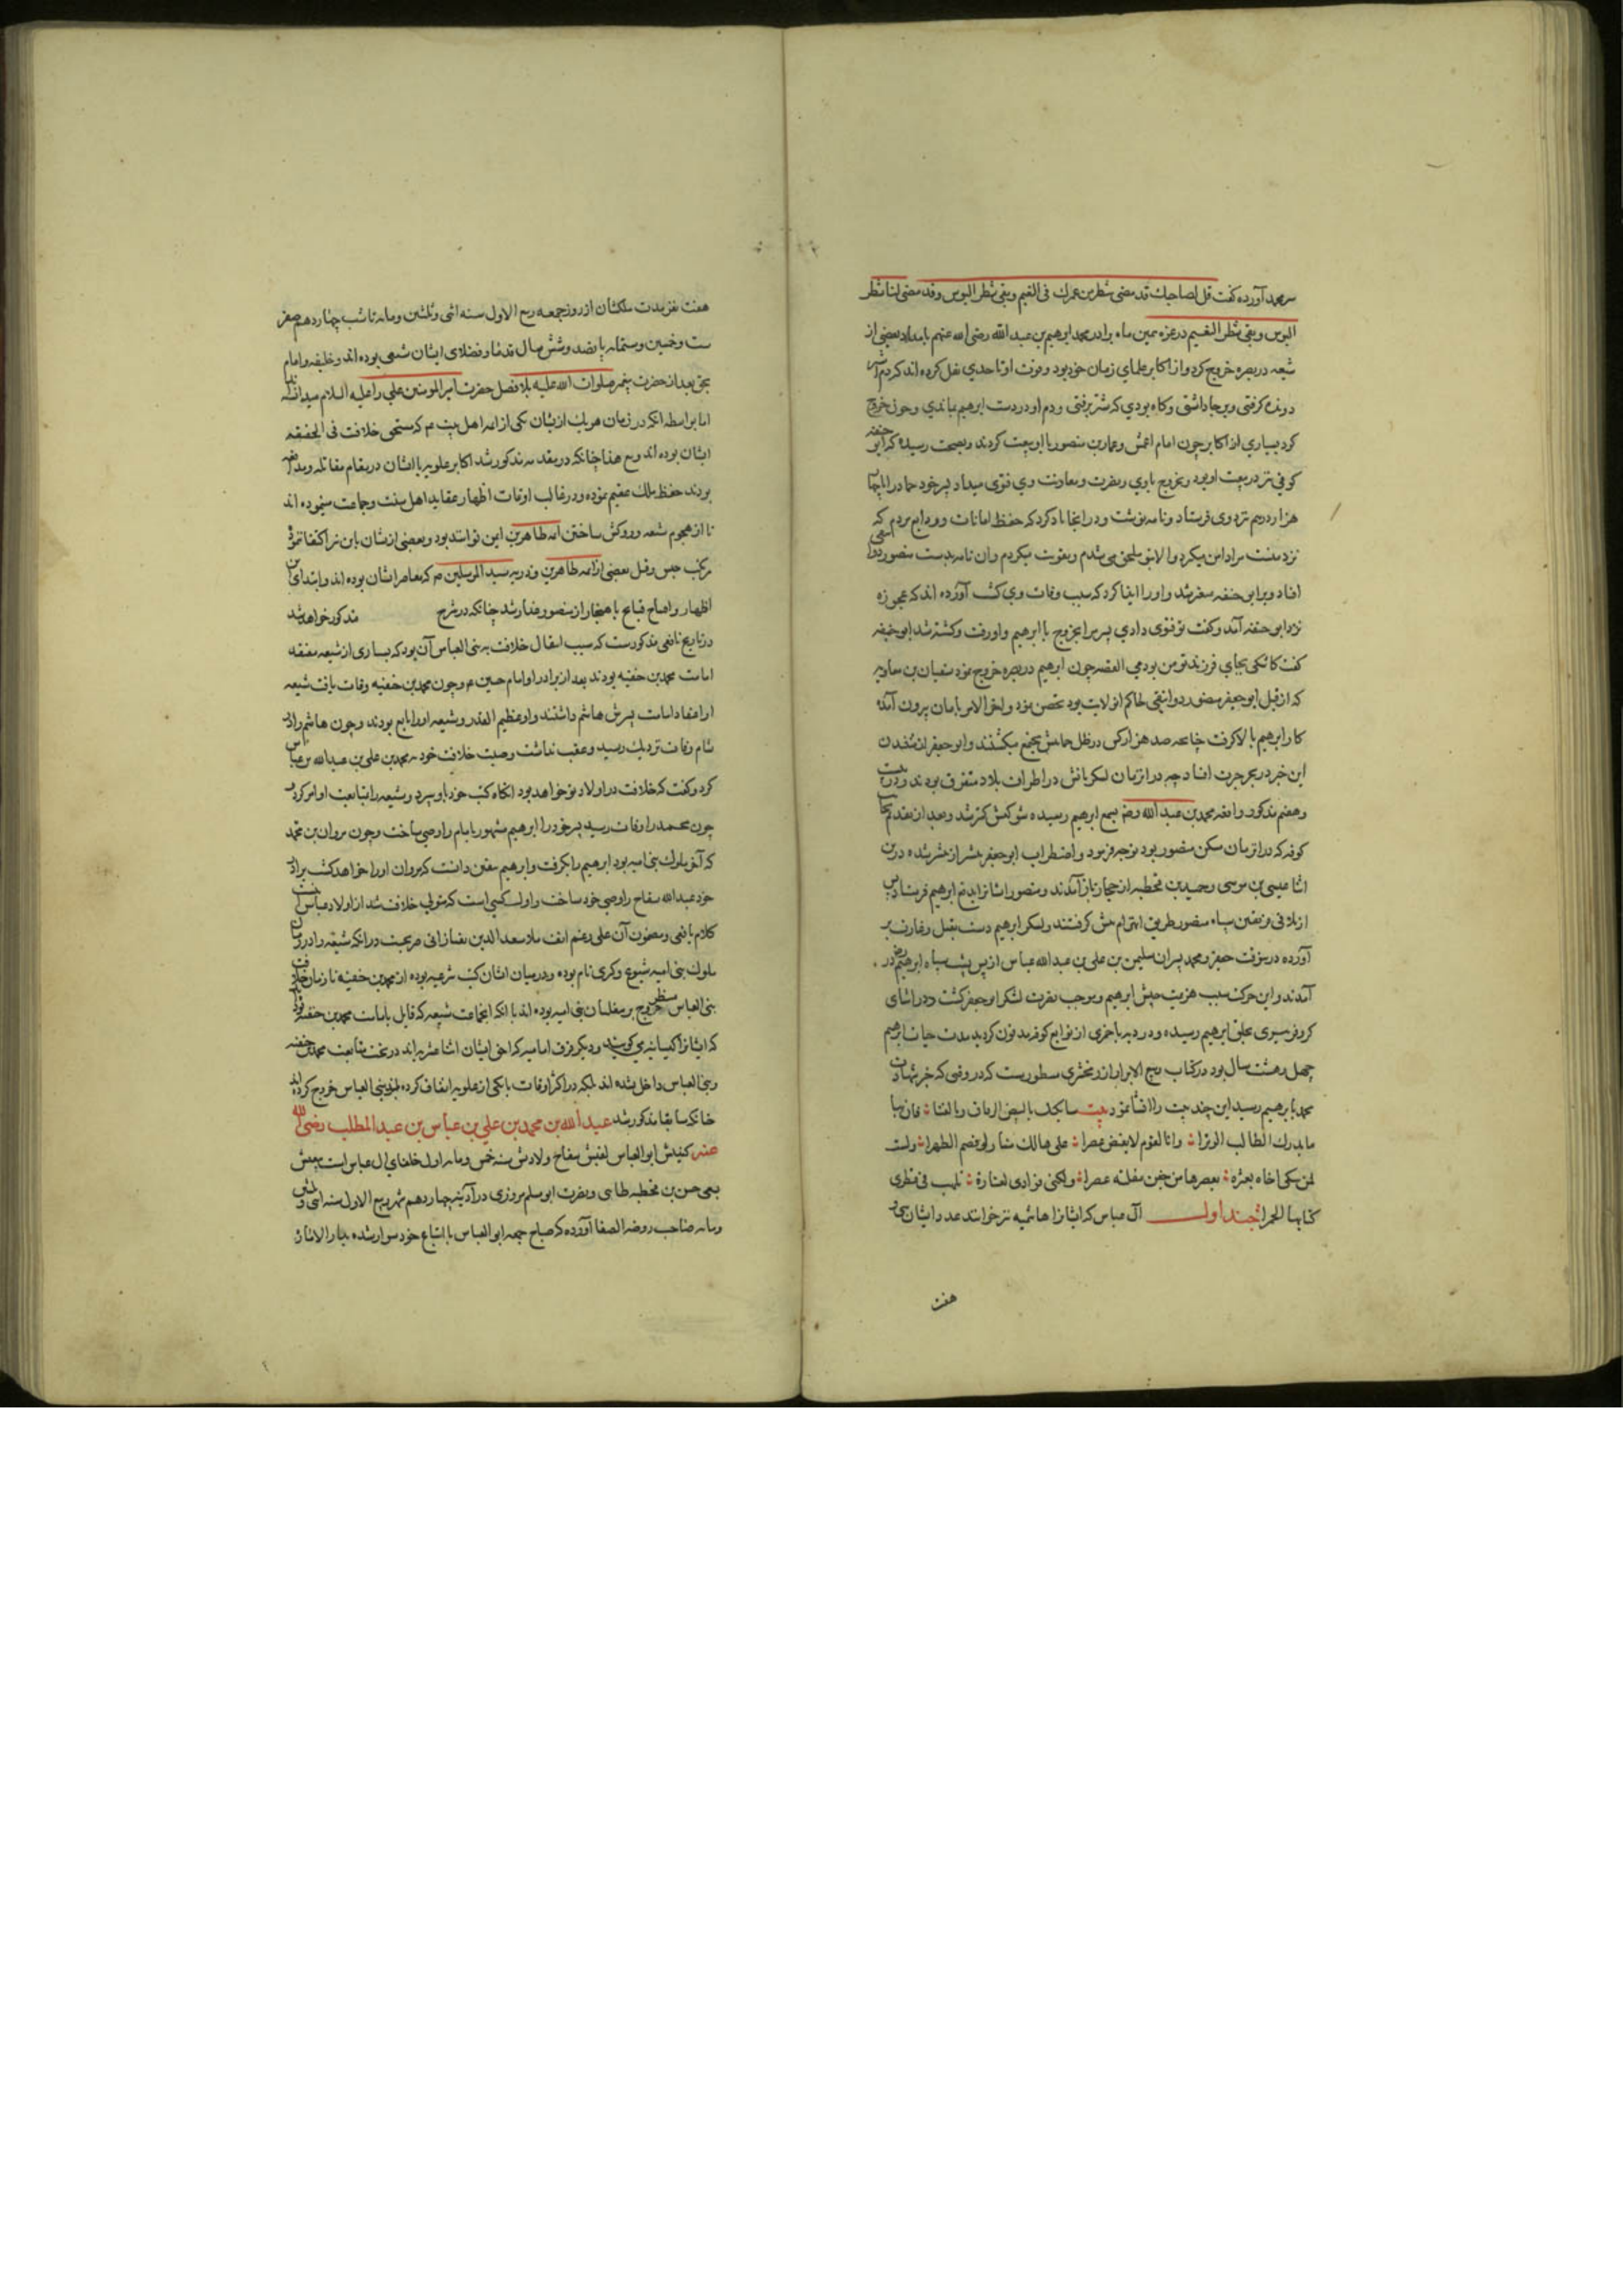 آورده گفت قل لصاحبك قد مضی شطر من عمرك فی النعیم وبقی شطر البوس وقد مضی لنا شطر
البوس وبقی شطر النعیم در غره همین ماه برادر محمد ابرهیم بن عبد الله رضی الله عنهم بامداد بعضی از
شیعه در بصره خروج کرد و از اکابر علمای زمان خود بود وقوت او تا حدی نقل کرده اند که دم
دونده کرفتی وبر جا داشتی وکاه بودی که شتر برفتی ودم او در دست ابرهیم بماندی وچون خروج
کرد بسیاری از اکابر چون امام اعمش وعباد بن منصور با او بیعت کردند وبصحت رسیده که ابو حنیفه
کوفی نیز در بیعت او بود وبخروج با وی ونصرت ومعاونت وی فتوی میداد پسر خود حماد را با چهار
هزار درهم نزد وی فرستاد ونامه نوشت ودر انجا یاد کرد که حفظ امانات وودایع مردم که
نزد منست مرا دامن میکیرد والا بتو ملحق می شدم وتقویت میکردم وان نامه بدست منصور دوانقی
افتاد وبر ابو حنیفه متغیر شد واو را ایذا کرد که سبب وفات وی کشت آورده اند که عجوزه
نزد ابو حنیفه آمد وکفت تو فتوی دادی پسر مرا بخروج با ابرهیم واو رفت وکشته شد ابو حنیفه
کفت کاشکی بجای فرزند تو من بودمی القصه چون ابرهیم در بصره خروج نمود سفیان بن معاویه
که از قبل ابو جعفر منصور دوانقی حاکم ان ولایت بود تحصن نمود واخر الامر بامان بیرون آمد
کار ابرهیم بالا کرفت چنانچه صد هزار کس در ظل حمایتش مجتمع میکشتند وابو جعفر از شنیدن
این خبر در بحر حیرت افتاد چه در ان زمان لشکریانش در اطراف بلاد متفرق بودند ودر بیست
وهفتم مذکور واقعه محمد بن عبد الله رضه بسمع ابرهیم رسیده شوکتش کمتر شد وبعد از تقدیم بجانب
کوفه که در ان زمان مسکن منصور بود توجه فرمود واضطراب ابو جعفر بیشتر از پیشتر شده درین
اثنا عیسی بن موسی وحمید بن قحطبه از حجاز باز آمدند ومنصور ایشانرا بدفع ابرهیم فرستاد پس
از تلاقی فریقین سپاه منصور طریق انهزام پیش کرفتند ولشکر ابرهیم دست بقتل وغارت بر
آورده درین وقت جعفر ومحمد پسران سلیمن بن علی بن عبد الله عباس از پس پشت سپاه ابرهیم در
آمدند واین حرکت سبب هزیمت جیش ابرهیم وموجب نصرت لشکر ابو جعفر کشت ودر اثنای
کروفر تیری بحلق ابرهیم رسیده ودر دیه باخمری از توابع کوفه مدفون کردید مدت حیات ابرهیم
چهل وهشت سال بود در کتاب ربیع الابرار از زمخشری مسطورست که در وقتی که خبر شهادت
محمد بابرهیم رسید این چند بیت را انشا نمود بیت سابکیك بالبیض الرقاق وبالقنا فان بها
ما یدرك الطالب الوترا وانا لقوم لا یفیض عبرا علی هالك منا ولو قصم الظهرا ولست
لمن یبکی اخاه بعبرة یعصرها من جفن مقلته عصرا ولکنی فوادی لغارة تلهب فی قطری
کتایبها الجمرا چند اول آل عباس که ایشانرا هاشمیه نیز خوانند عدد ایشان سی و
هفت
هفت نفر مدت ملکشان از روز جمعه ربیع الاول سنه اثنی وثلثین ومایه تا شب چهاردهم صفر
ست وخمسین وستمایه پانصد وشش سال قدما وفضلای ایشان شیعی بوده اند وخلیفه وامام
بحق بعد از حضرت پیغمبر صلوات الله علیه بلا فصل حضرت امیر المومنین علی را علیه السلام میدانند
اما بواسطه انکه در زمان هر یك از یشان یکی از ائمه اهل بیت عم که مستحق خلافت فی الحقیقه
ایشان بوده اند ومع هذا چنانکه در مقدمه مذکور شد اکابر علویه با ایشان در مقام مقاتله ومدافعه
بودند حفظ ملك عقیم نموده ودر غالب اوقات اظهار عقاید اهل سنت وجماعت مینموده اند
تا از هجوم شیعه ورو کش ساختن ائمه طاهرین ایمن توانند بود وبعضی از یشان باین نیز اکتفا ننموده
مرتکب حبس وقتل بعضی از ائمه طاهرین وذریه سید المرسلین صم که معاصر ایشان بوده اند وابتدای
اظهار واصاح قبایح با هنجار از منصور غدار شد چنانکه در شرح مذکور خواهد شد
در تاریخ یافعی مذکورست که سبب انتقال خلافت به بنی العباس آن بود که بسیاری از شیعه معتقد
امامت محمد بن حنفیه بودند بعد از برادر او امام حسین عم وچون محمد بن حنفیه وفات یافت شیعه
او اعتقاد امامت پسرش هاشم داشتند واو عظیم القدر وشیعه او را تابع بودند وچون هاشم را در
شام وفات نزدیك رسید وعقب نداشت وصیت خلافت خود به محمد بن علی بن عبد الله بن عباس
کرد وکفت که خلافت در اولاد تو خواهد بود انکاه کتب خود باو سپرد وشیعه را بتابعت او امر کرد
چون محمد را وفات رسید پسر خود را ابرهیم مشهور بامام را وصی ساخت وچون مروان بن محمد
که آخر ملوك بنی امیه بود ابرهیم را بکرفت وابرهیم متیقن دانست که مروان او را خواهد کشت برادر
خود عبد الله سفاح را وصی خود ساخت واول کسی است که متولی خلافت شد از اولاد عباس
کلام یافعی ومضمون آن علی رغم انف ملا سعد الدین تفتازانی صریحست در انکه شیعه را در زمان
ملوك بنی امیه شیوع وکری نام بوده ودر میان ایشان کتب شرعیه بوده از محمد بن حنفیه تا زمان خلافت
بنی العباس منتظر خروج بر متغلبان بنی امیه بوده اند با انکه انجماعت شیعه که قایل بامامت محمد بن حنفیه
که ایشانرا کیسانیه می کویند ودیکر فرق امامیه که احق ایشان اثنا عشریه اند در تحت متابعت محمد بن حنفیه
وبنی العباس داخل نشده اند بلکه در اکثر اوقات با یکی از علویه اتفاق کرده بر بنی العباس خروج کرده اند
چنانکه سابقا مذکور شد عبد الله بن محمد بن علی بن عباس بن عبد المطلب رضی الله
عنه کنیتش ابو العباس لقبش سفاح ولادتش سنه خمس ومایه اول خلفای ال عباس است
بسعی حسن بن قحطبه طایی ونصرت ابو مسلم مروزی در آدینه چهاردهم شهر ربیع الاول سنه اثنی وثلثین
ومایه صاحب روضه الصفا آورده که صباح جمعه ابو العباس با اتباع خود سوار شده بدار الاماره